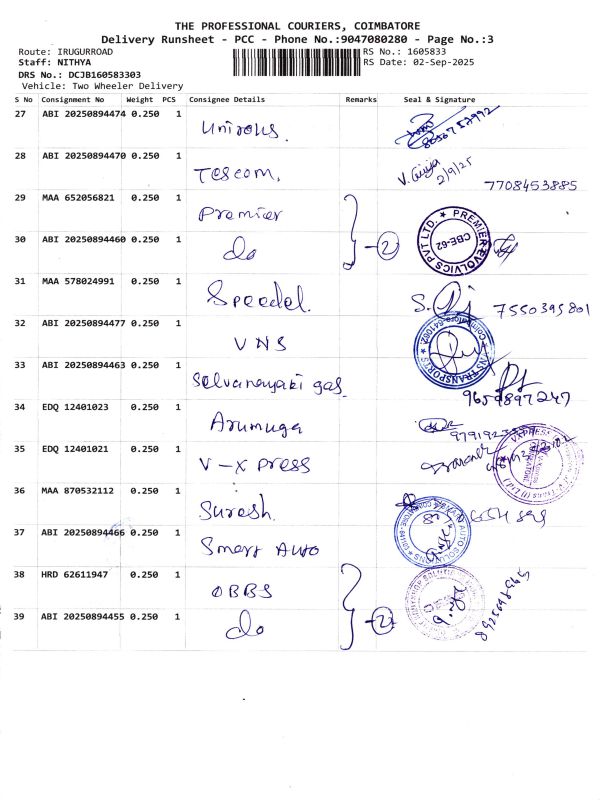 THE PROFESSIONAL COURIERS, COIMBATORE
Delivery Runsheet - PCC - Phone No.:9047080280 - Page No.:3
Route: IRUGURROAD RS No.: 1605833
Staff: NITHYA RS Date: 02-Sep-2025
DRS No.: DCJB160583303
Vehicle: Two Wheeler Delivery
S No Consignment No Weight PCS Consignee Details Remarks Seal & Signature
27 ABI 20250894474 0.250 1
28 ABI 20250894470 0.250 1 Tescom. 2/9/25 7708453885
29 MAA 652056821 0.250 1 Premier
30 ABI 20250894460 0.250 1 do 2 PREMIER EVOLVICS PVT LTD. CBE-62
31 MAA 578024991 0.250 1 Speedel. 7550395801
32 ABI 20250894477 0.250 1 VNS
33 ABI 20250894463 0.250 1 Selvanayaki gas. 9659897247
34 EDQ 12401023 0.250 1 Arumuga
35 EDQ 12401021 0.250 1 V-X press
36 MAA 870532112 0.250 1 Suresh.
37 ABI 20250894466 0.250 1 Smart Auto
38 HRD 62611947 0.250 1 OBBS
39 ABI 20250894455 0.250 1 do 2